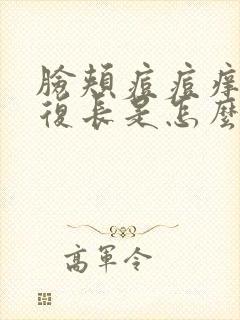 臉頰痘痘痒
復長是怎麼
高軍令